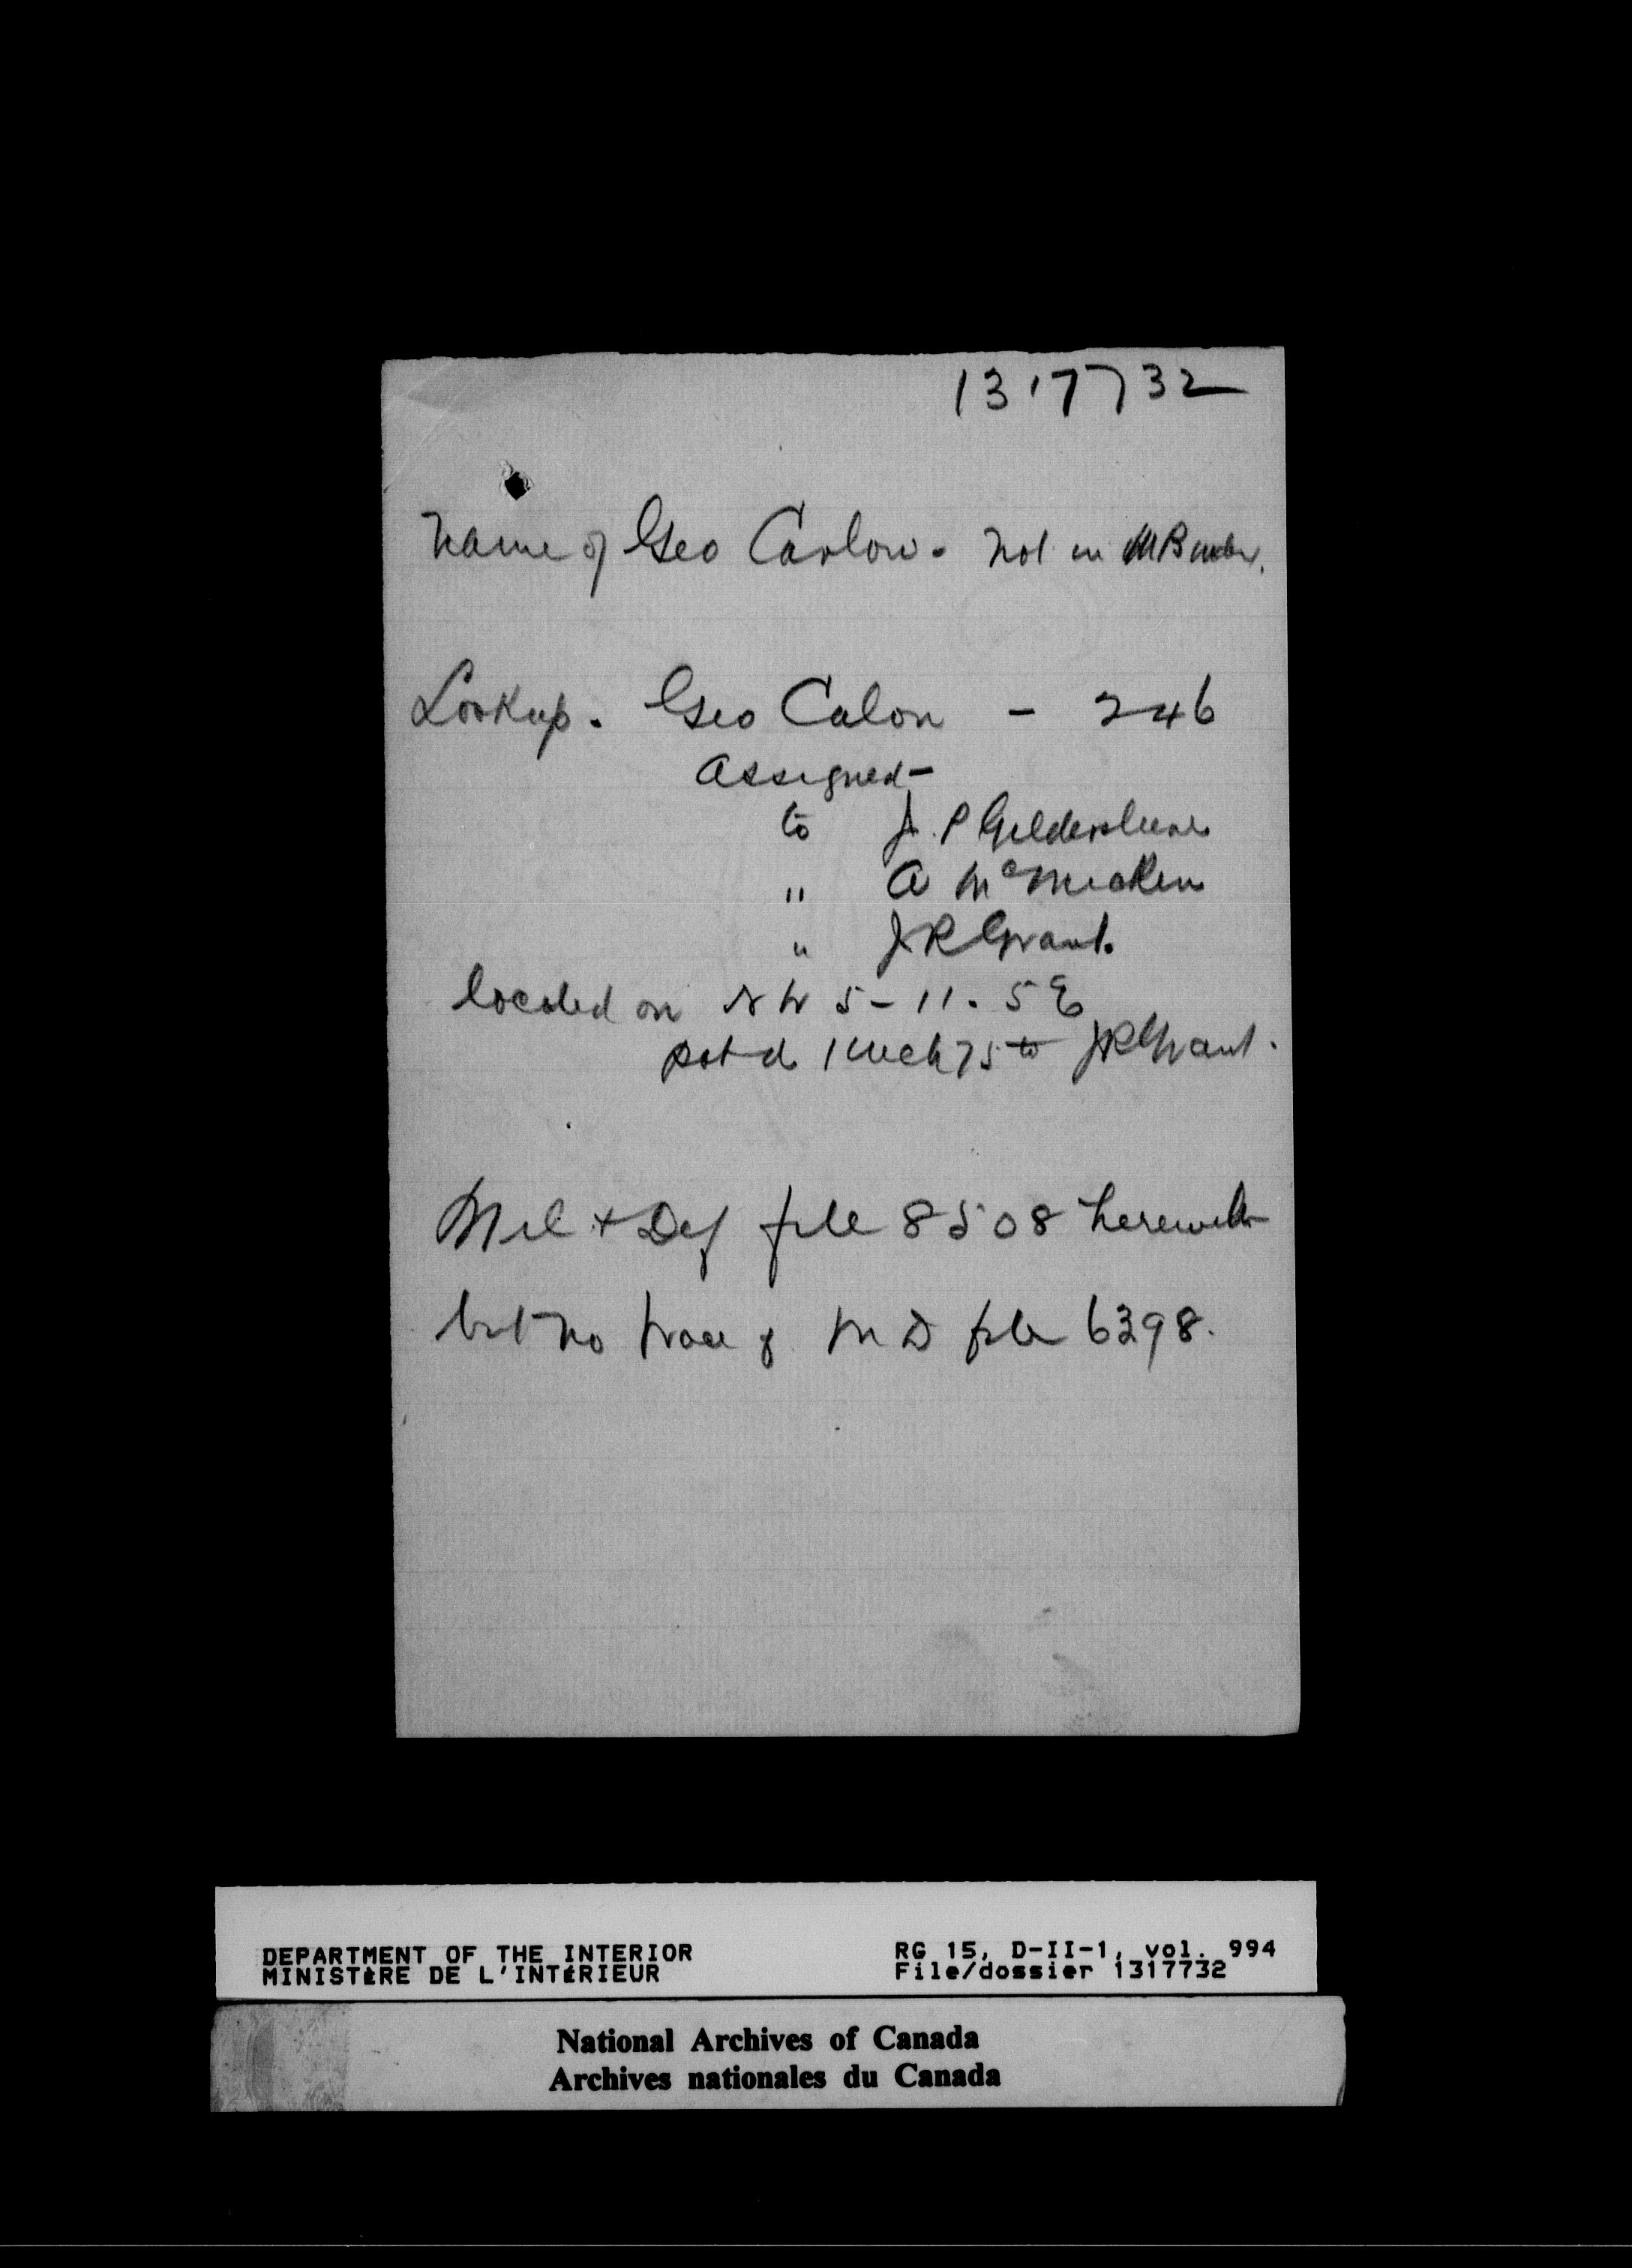 1317732
Name of Geo Carlow. Not in MB index.
Lookup. Geo Calon - 246
Assigned -
to J. P Gildersleeve
" A McMicken
" J R Grant.
located on NW 5-11. 5E
pat'd 1 Mch 75 to JR Grant.
Mil + Def file 8508 herewith
but no trace of M D file 6398.
DEPARTMENT OF THE INTERIOR
MINISTÈRE DE L'INTÉRIEUR
RG 15, D-II-1, vol. 994
File/dossier 1317732
National Archives of Canada
Archives nationales du Canada